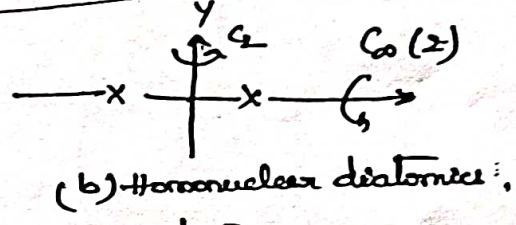 Y
C₂
C∞ (z)
x x
(b) Homonuclear diatomics :.